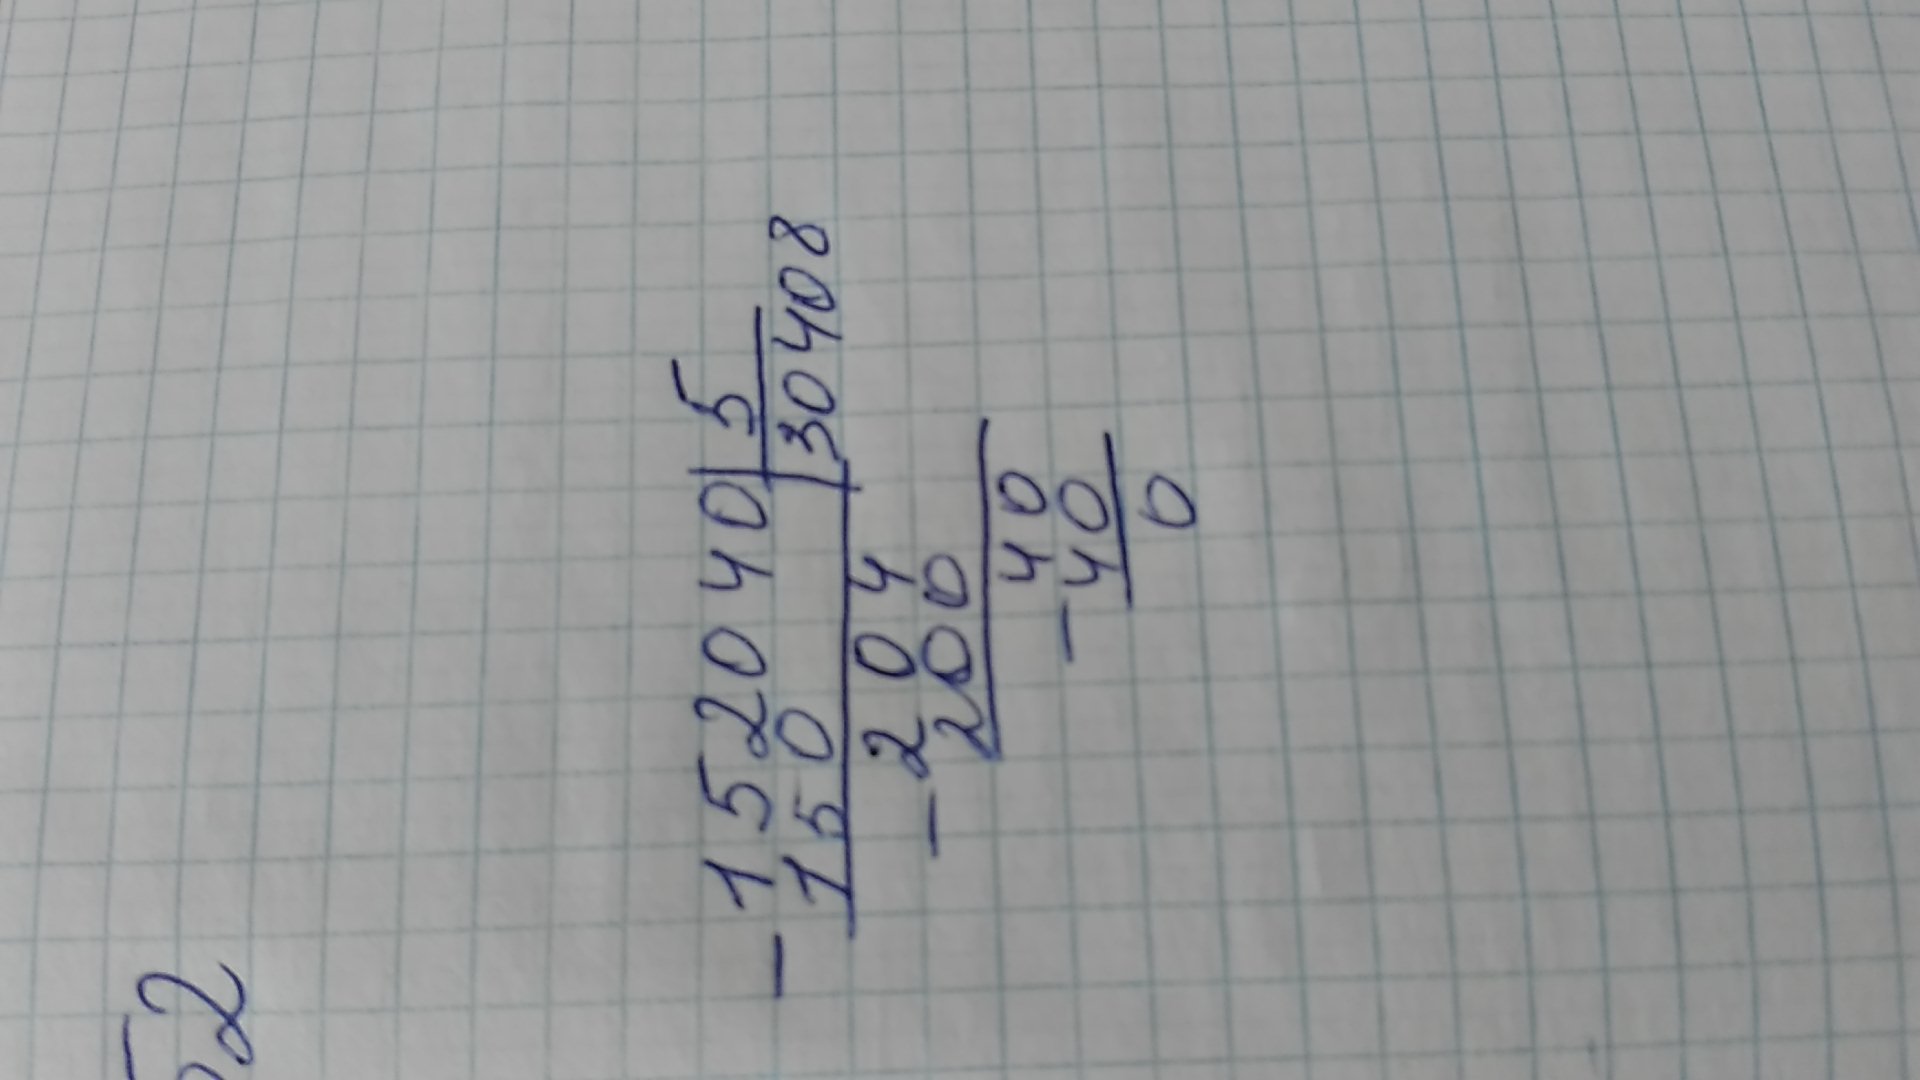 52
- 152040 | 5
150 | 30408
204
- 200
40
- 40
0